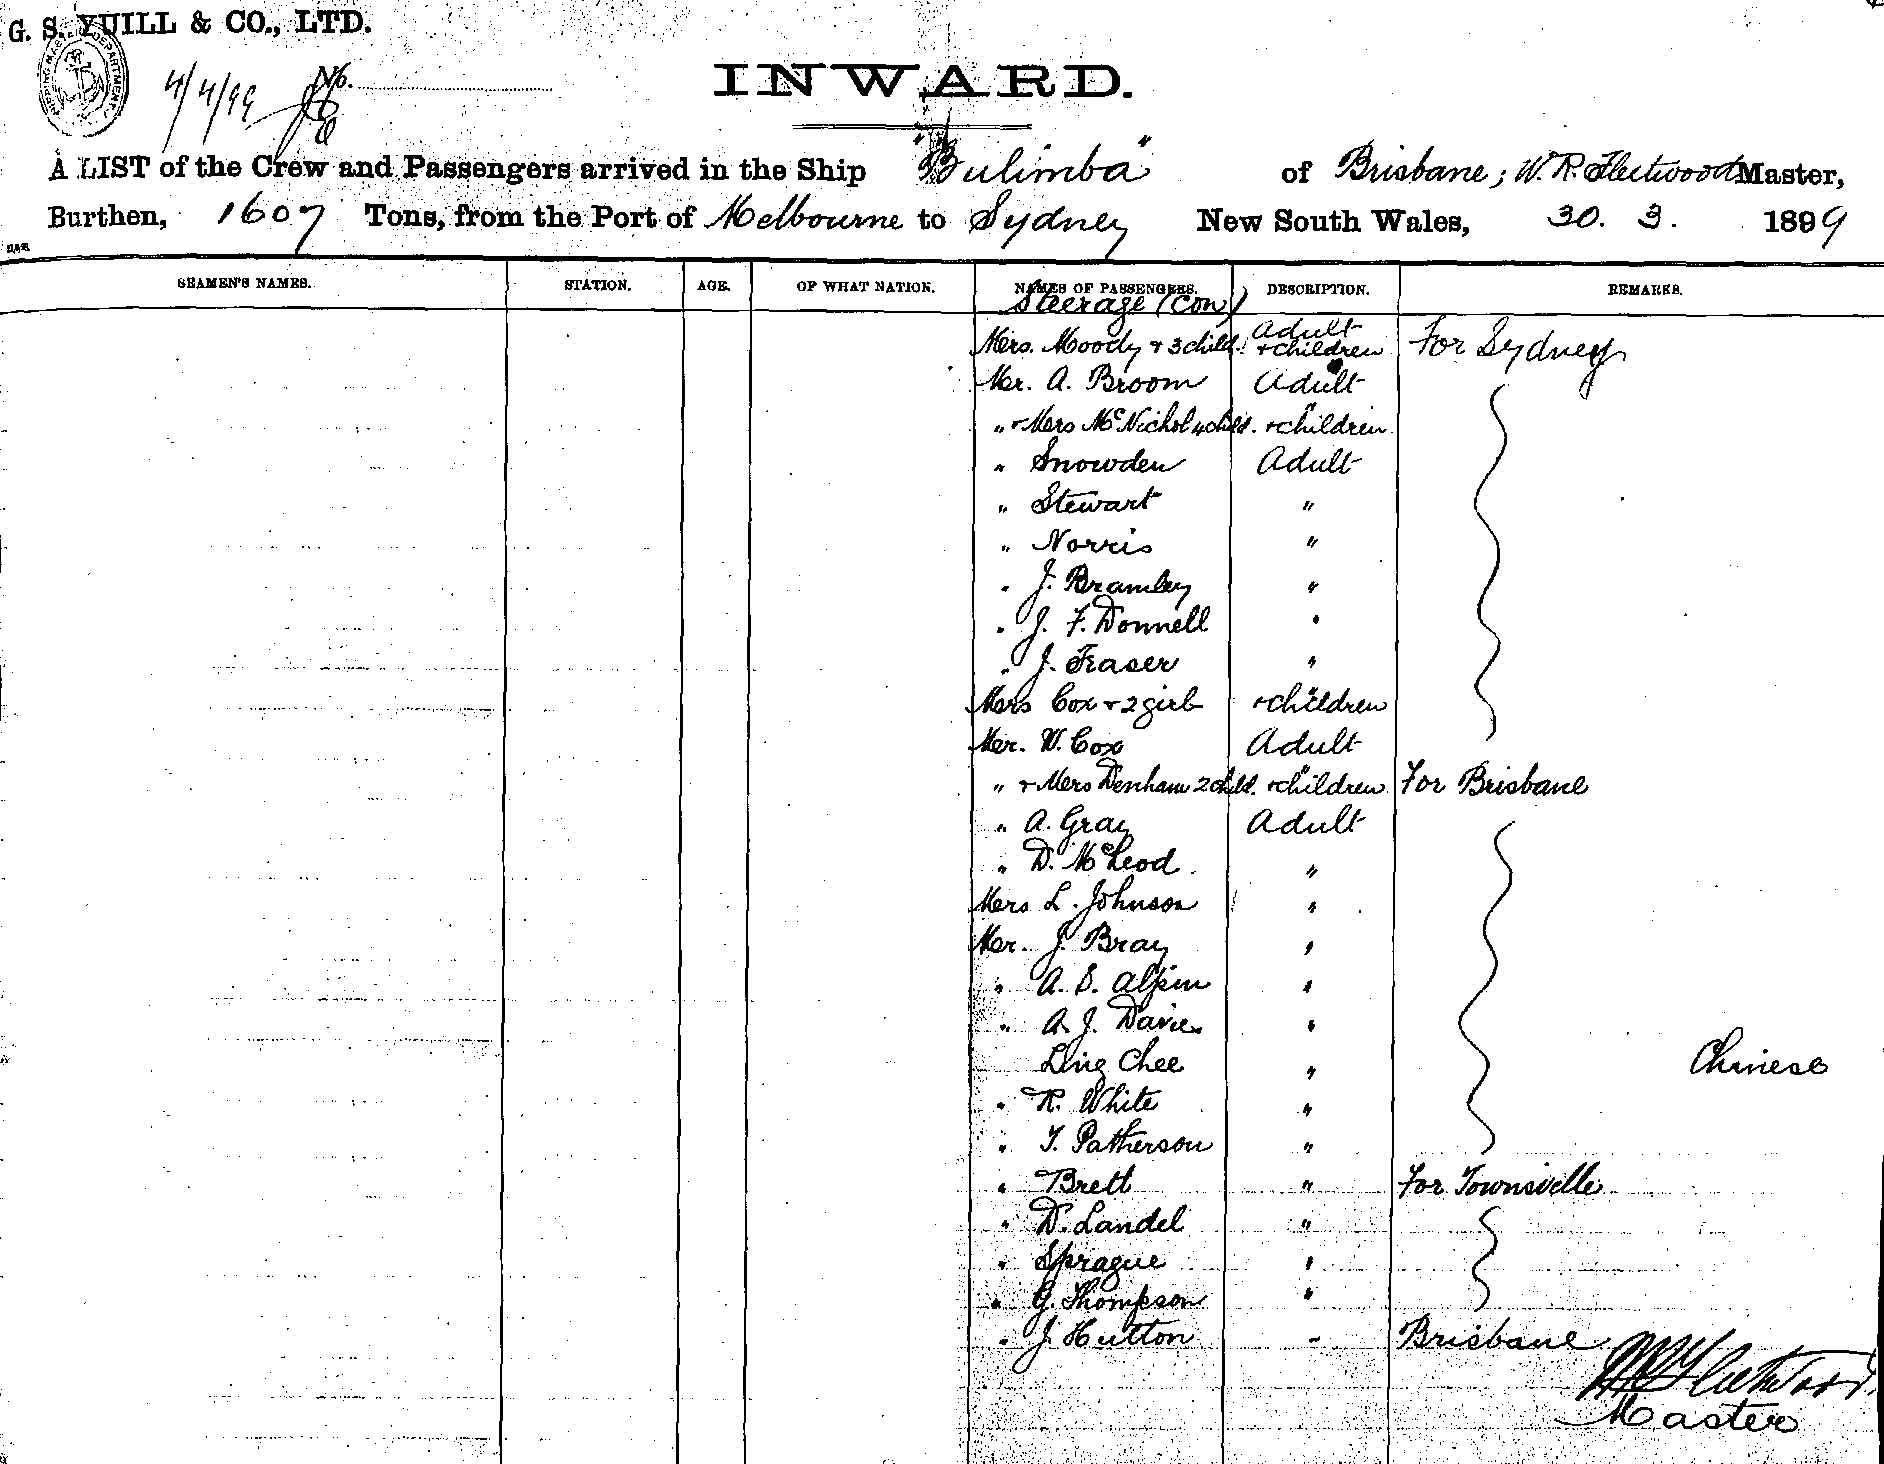 G. S. YUILL & CO., LTD.
4/4/99 No.
INWARD.
A LIST of the Crew and Passengers arrived in the Ship "Bulimba" of Brisbane; W. R. Fleetwood Master,
Burthen, 1607 Tons, from the Port of Melbourne to Sydney New South Wales, 30. 3. 1899
SEAMEN'S NAMES. STATION. AGE. OF WHAT NATION. NAMES OF PASSENGERS. DESCRIPTION. REMARKS.
Steerage (con)
Mrs. Moody & 3 child. Adult & children For Sydney
Mr. A. Broom Adult
" & Mrs McNichol 4 child. " & children
" Snowden Adult
" Stewart "
" Norris "
" J. Bramley "
" J. F. Donnell "
" J. Fraser "
Mrs Cox & 2 girls " & children
Mr. W. Cox Adult
" & Mrs Denham 2 child. " & children For Brisbane
" A. Gray Adult
" D. McLeod "
Mrs L. Johnson "
Mr. J. Bray "
" A. S. Alpin "
" A. J. Davies "
Ling Chee " Chinese
" R. White "
" T. Patherson "
" Brett " For Townsville
" D. Landel "
" Sprague "
" G. Thompson "
" J. Hutton " Brisbane
W R Fleetwood
Master